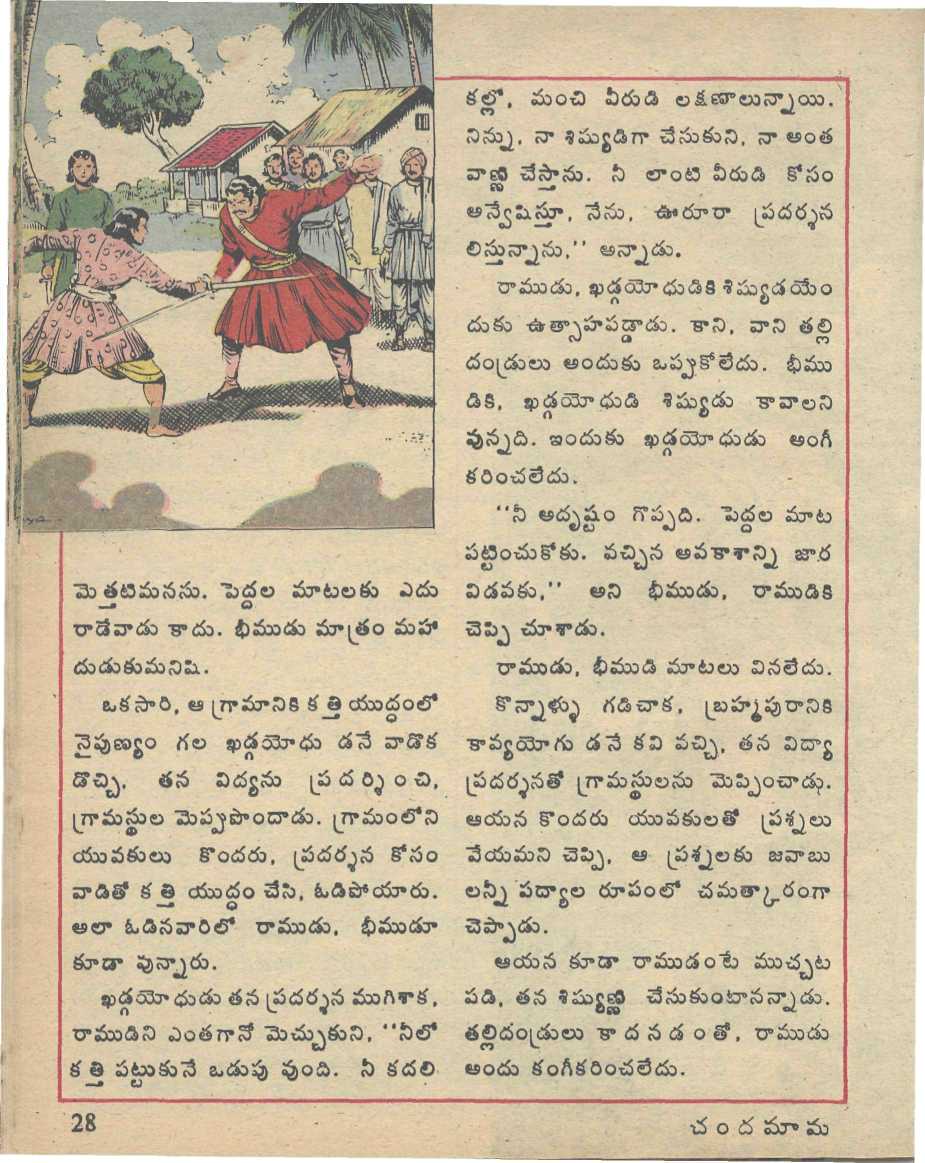 మెత్తటిమనసు. పెద్దల మాటలకు ఎదు
రాడేవాడు కాదు. భీముడు మాత్రం మహా
దుడుకుమనిషి.
ఒకసారి, ఆ గ్రామానికి కత్తి యుద్ధంలో
నైపుణ్యం గల ఖడ్గయోధు డనే వాడొక
డొచ్చి, తన విద్యను ప్రదర్శించి,
గ్రామస్థుల మెప్పుపొందాడు. గ్రామంలోని
యువకులు కొందరు, ప్రదర్శన కోసం
వాడితో కత్తి యుద్ధం చేసి, ఓడిపోయారు.
అలా ఓడినవారిలో రాముడు, భీముడూ
కూడా వున్నారు.
ఖడ్గయోధుడు తన ప్రదర్శన ముగిశాక,
రాముడిని ఎంతగానో మెచ్చుకుని, ‘‘నీలో
కత్తి పట్టుకునే ఒడుపు వుంది. నీ కదలి
కల్లో, మంచి వీరుడి లక్షణాలున్నాయి.
నిన్ను, నా శిష్యుడిగా చేసుకుని, నా అంత
వాణ్ణి చేస్తాను. నీ లాంటి వీరుడి కోసం
అన్వేషిస్తూ, నేను, ఊరూరా ప్రదర్శన
లిస్తున్నాను,’’ అన్నాడు.
రాముడు, ఖడ్గయోధుడికి శిష్యుడయేం
దుకు ఉత్సాహపడ్డాడు. కాని, వాని తల్లి
దండ్రులు అందుకు ఒప్పుకోలేదు. భీము
డికి, ఖడ్గయోధుడి శిష్యుడు కావాలని
వున్నది. ఇందుకు ఖడ్గయోధుడు అంగీ
కరించలేదు.
‘‘నీ అదృష్టం గొప్పది. పెద్దల మాట
పట్టించుకోకు. వచ్చిన అవకాశాన్ని జార
విడవకు,’’ అని భీముడు, రాముడికి
చెప్పి చూశాడు.
రాముడు, భీముడి మాటలు వినలేదు.
కొన్నాళ్ళు గడిచాక, బ్రహ్మపురానికి
కావ్యయోగు డనే కవి వచ్చి, తన విద్యా
ప్రదర్శనతో గ్రామస్థులను మెప్పించాడు.
ఆయన కొందరు యువకులతో ప్రశ్నలు
వేయమని చెప్పి, ఆ ప్రశ్నలకు జవాబు
లన్నీ పద్యాల రూపంలో చమత్కారంగా
చెప్పాడు.
ఆయన కూడా రాముడంటే ముచ్చట
పడి, తన శిష్యుణ్ణి చేసుకుంటానన్నాడు.
తల్లిదండ్రులు కాదనడంతో, రాముడు
అందు కంగీకరించలేదు.
28
చందమామ